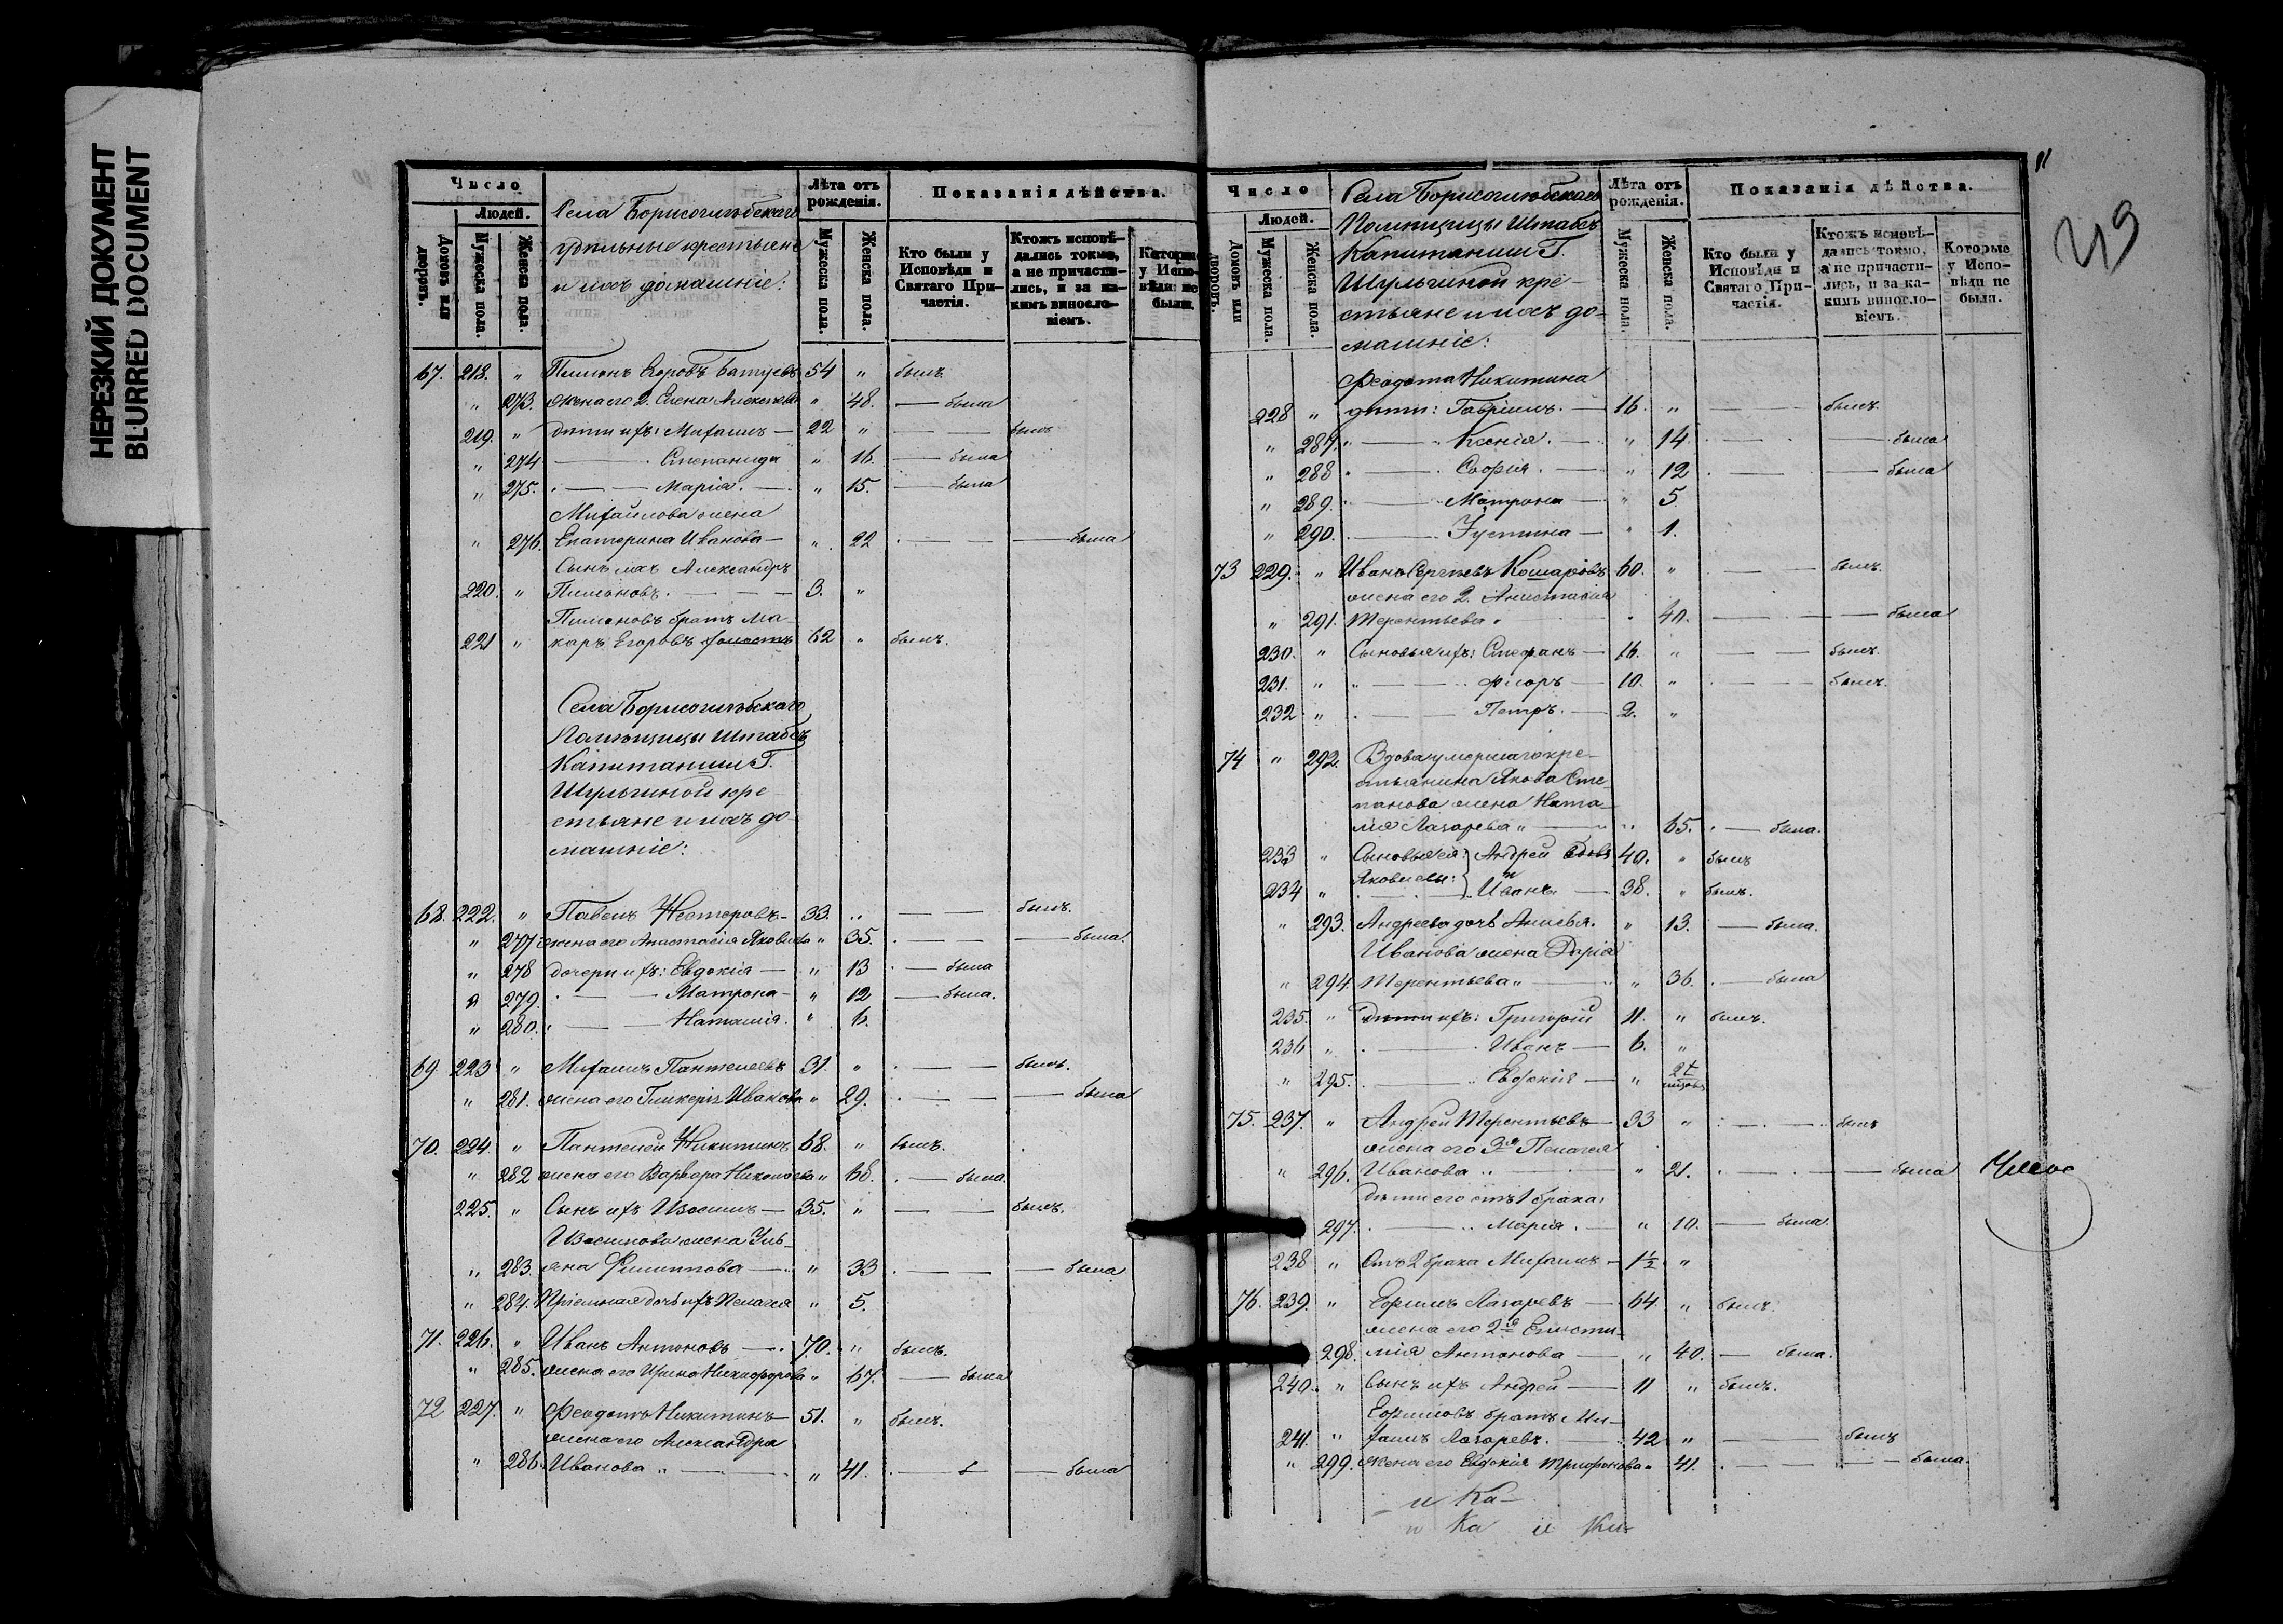 НЕРЕЗКИЙ ДОКУМЕНТ
BLURRED DOCUMENT
Число
Людей.
Домовъ или дворовъ.
Мужеска пола.
Женска пола.
Села Борисоглѣбскаго
удѣльные крестьяне
и ихъ домашніе:
Лѣта отъ рожденія.
Мужеска пола.
Женска пола.
Показанія дѣйства.
Кто были у Исповѣди и Святаго Причастія.
Ктожъ исповѣдались токмо, а не причастились, и за какимъ винословіемъ.
Которые у Исповѣди не были.
67. 218. " Пименъ Егоровъ 54 " былъ.
" 273. жена его 2. Елена Алексѣева " 48. — была
219. " дѣти ихъ: Михаилъ — 22 " — — былъ
" 274 — Степанида " 16. — была
" 275. — Марія. — " 15. — была
Михайлова жена
" 276. Екатерина Иванова — " 22 — — была
Сынъ ихъ Александръ
220. " Пименовъ. — 3. "
Пименовъ братъ Ма-
221 " каръ Егоровъ холостъ 62 " былъ.
Села Борисоглѣбскаго
Помѣщицы Штабсъ
Капитанши Г.
Шульгиной кре-
стьяне и ихъ до-
машніе:
68. 222. " Павелъ Несторовъ — 33. " — — былъ.
" 277 жена его Анастасія Яковлева " 35. — — была.
" 278 дочери ихъ: Евдокія — " 13 — была
" 279. — Матрона — " 12 — была.
" 280. — Наталія. " 6.
69 223 " Михаилъ Пантелеевъ 31. " — — былъ.
" 281. жена его Гликерія Иванова " 29. — — была
70. 224. " Пантелей Никитинъ 68. " былъ.
" 282 жена его Варвара Николаева " 68. — была.
225. " Сынъ ихъ Изосимъ — 35. " — — былъ.
Изосимова жена Улі-
" 283. яна Филиппова — " 33 — — была
" 284. Пріемная дочь ихъ Пелагея " 5.
71. 226. " Иванъ Антоновъ — 70. " былъ.
" 285. жена его Ирина Никифорова " 67. — была
72 227. " Феодотъ Никитинъ — 51. " былъ.
жена его Александра
" 286. Иванова " — " 41. — — была
11
49
Число
Людей.
Домовъ или дворовъ.
Мужеска пола.
Женска пола.
Села Борисоглѣбскаго
Помѣщицы Штабсъ
Капитанши Г.
Шульгиной кре-
стьяне и ихъ до-
машніе:
Лѣта отъ рожденія.
Мужеска пола.
Женска пола.
Показанія дѣйства.
Кто были у Исповѣди и Святаго Причастія.
Ктожъ исповѣдались токмо, а не причастились, и за какимъ винословіемъ.
Которые у Исповѣди не были.
Феодота Никитина
228 " дѣти: Гавріилъ. — 16. " — — былъ.
" 287. " — Ксенія. — " 14. — — была
" 288 " — Софія. — " 12 — — была
" 289. — Матрона — " 5
" 290. — Іустина — " 1.
73 229. " Иванъ Сергѣевъ Кошаровъ 60. " — — былъ.
жена его 2. Анастасія
" 291. Терентьева " " 40. — — была
230. " Сыновья ихъ: Стефанъ — 16. " — — былъ.
231. " " — Флоръ — 10. " — — былъ.
232 " — Петръ. — 2. "
74 " 292. Вдова умершаго кре-
стьянина Якова Сте-
панова жена Ната-
лія Лазарева " — " 65. — была.
233 " Сыновья ея: Андрей вдовъ 40. " былъ
234 " Яковлевы: Иванъ — 38. " былъ.
" 293. Андреева дочь Анисья. " 13. — была.
Иванова жена Дарія
" 294. Терентьева " — " 36. — была
235. " Дѣти ихъ: Григорій 11. " былъ.
236 " — Иванъ — 6. "
" 295. — Евдокія — "
75. 237. " Андрей Терентьевъ 33 " — былъ
жена его 3я Пелагея
" 296. Иванова " — " 21. — — была
дѣти его отъ 1 брака:
297. — Марія. — " 10. — была.
238 " Отъ 2 брака Михаилъ — 1½ "
76. 239. " Ефимъ Лазаревъ — 64 " былъ.
жена его 2я Еписти-
298. мія Антонова — " 40. — была.
240. " Сынъ ихъ Андрей — 11 " былъ.
Ефимовъ братъ Ми-
241. " хаилъ Лазаревъ. 42 " — былъ
" 299. жена его Евдокія Трифонова " 41. — — была.
и Ка —
и Ка и Ки